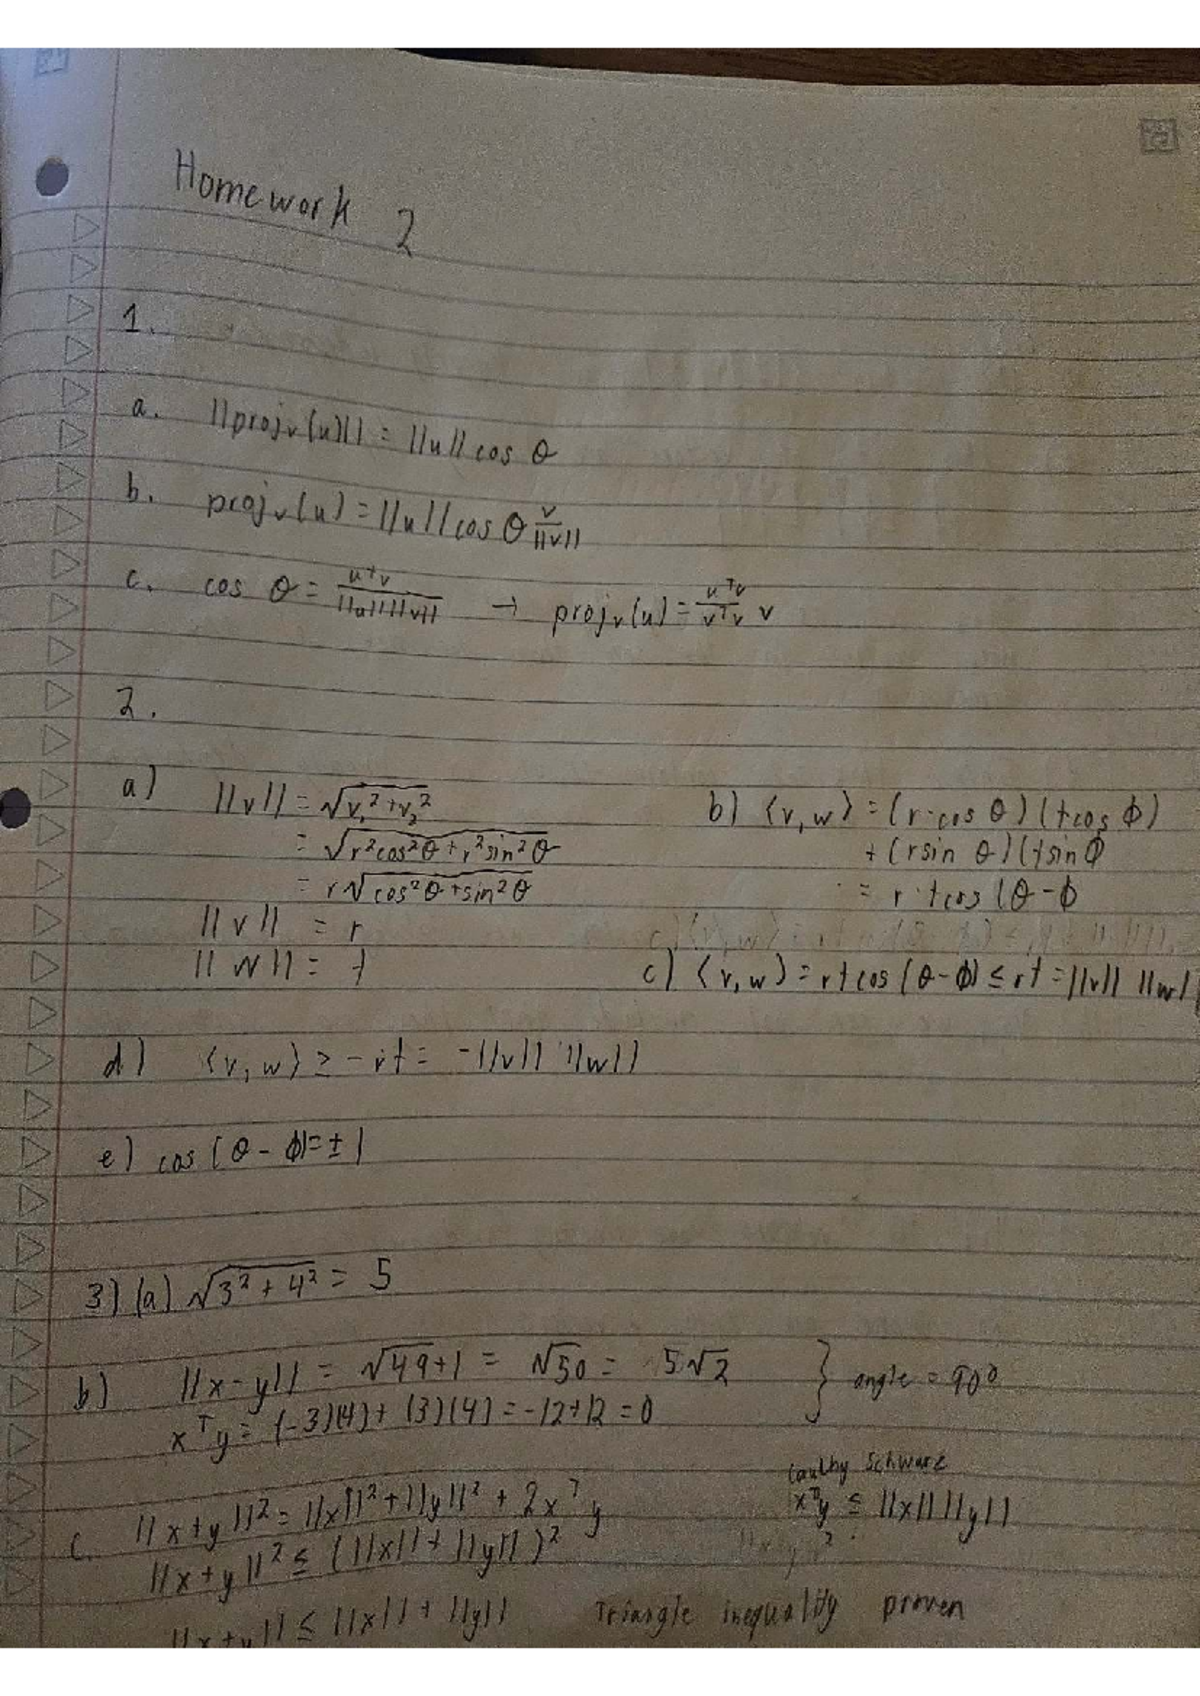 Homework 2
1.
a. ||proj_v(u)|| = ||u|| cos θ
b. proj_v(u) = ||u|| cos θ v/||v||
c. cos θ = u^T v/||u|| ||v|| → proj_v(u) = u^T v/v^T v v
2.
a) ||v|| = √(v₁² + v₂²)
= √(r²cos²θ + r²sin²θ)
= r√(cos²θ + sin²θ)
||v|| = r
||w|| = t
b) ⟨v, w⟩ = (r·cos θ)(t cos ϕ)
+ (r sin θ)(t sin ϕ
= r·t cos (θ - ϕ
c) ⟨v, w⟩ = rt cos (θ - ϕ) ≤ rt = ||v|| ||w||
d) ⟨v, w⟩ ≥ - rt = -||v|| ||w||
e) cos (θ - ϕ) = ± 1
3) (a) √(3² + 4²) = 5
b) ||x - y|| = √(49+1) = √50 = 5√2
x^T y = (-3)(4) + (3)(4) = -12+12 = 0
} angle = 90°
c. ||x + y||² = ||x||² + ||y||² + 2x^T y
||x + y||² ≤ (||x|| + ||y||)²
||x + y|| ≤ ||x|| + ||y||
Cauchy Schwarz
x^T y ≤ ||x|| ||y||
Triangle inequality proven